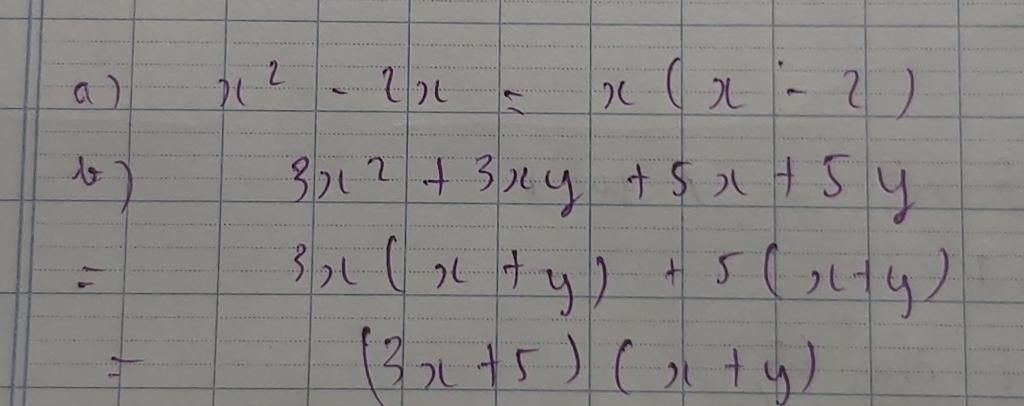 a) x² - 2x = x(x - 2)
b) 3x² + 3xy + 5x + 5y
= 3x(x + y) + 5(x+y)
= (3x+5)(x+y)